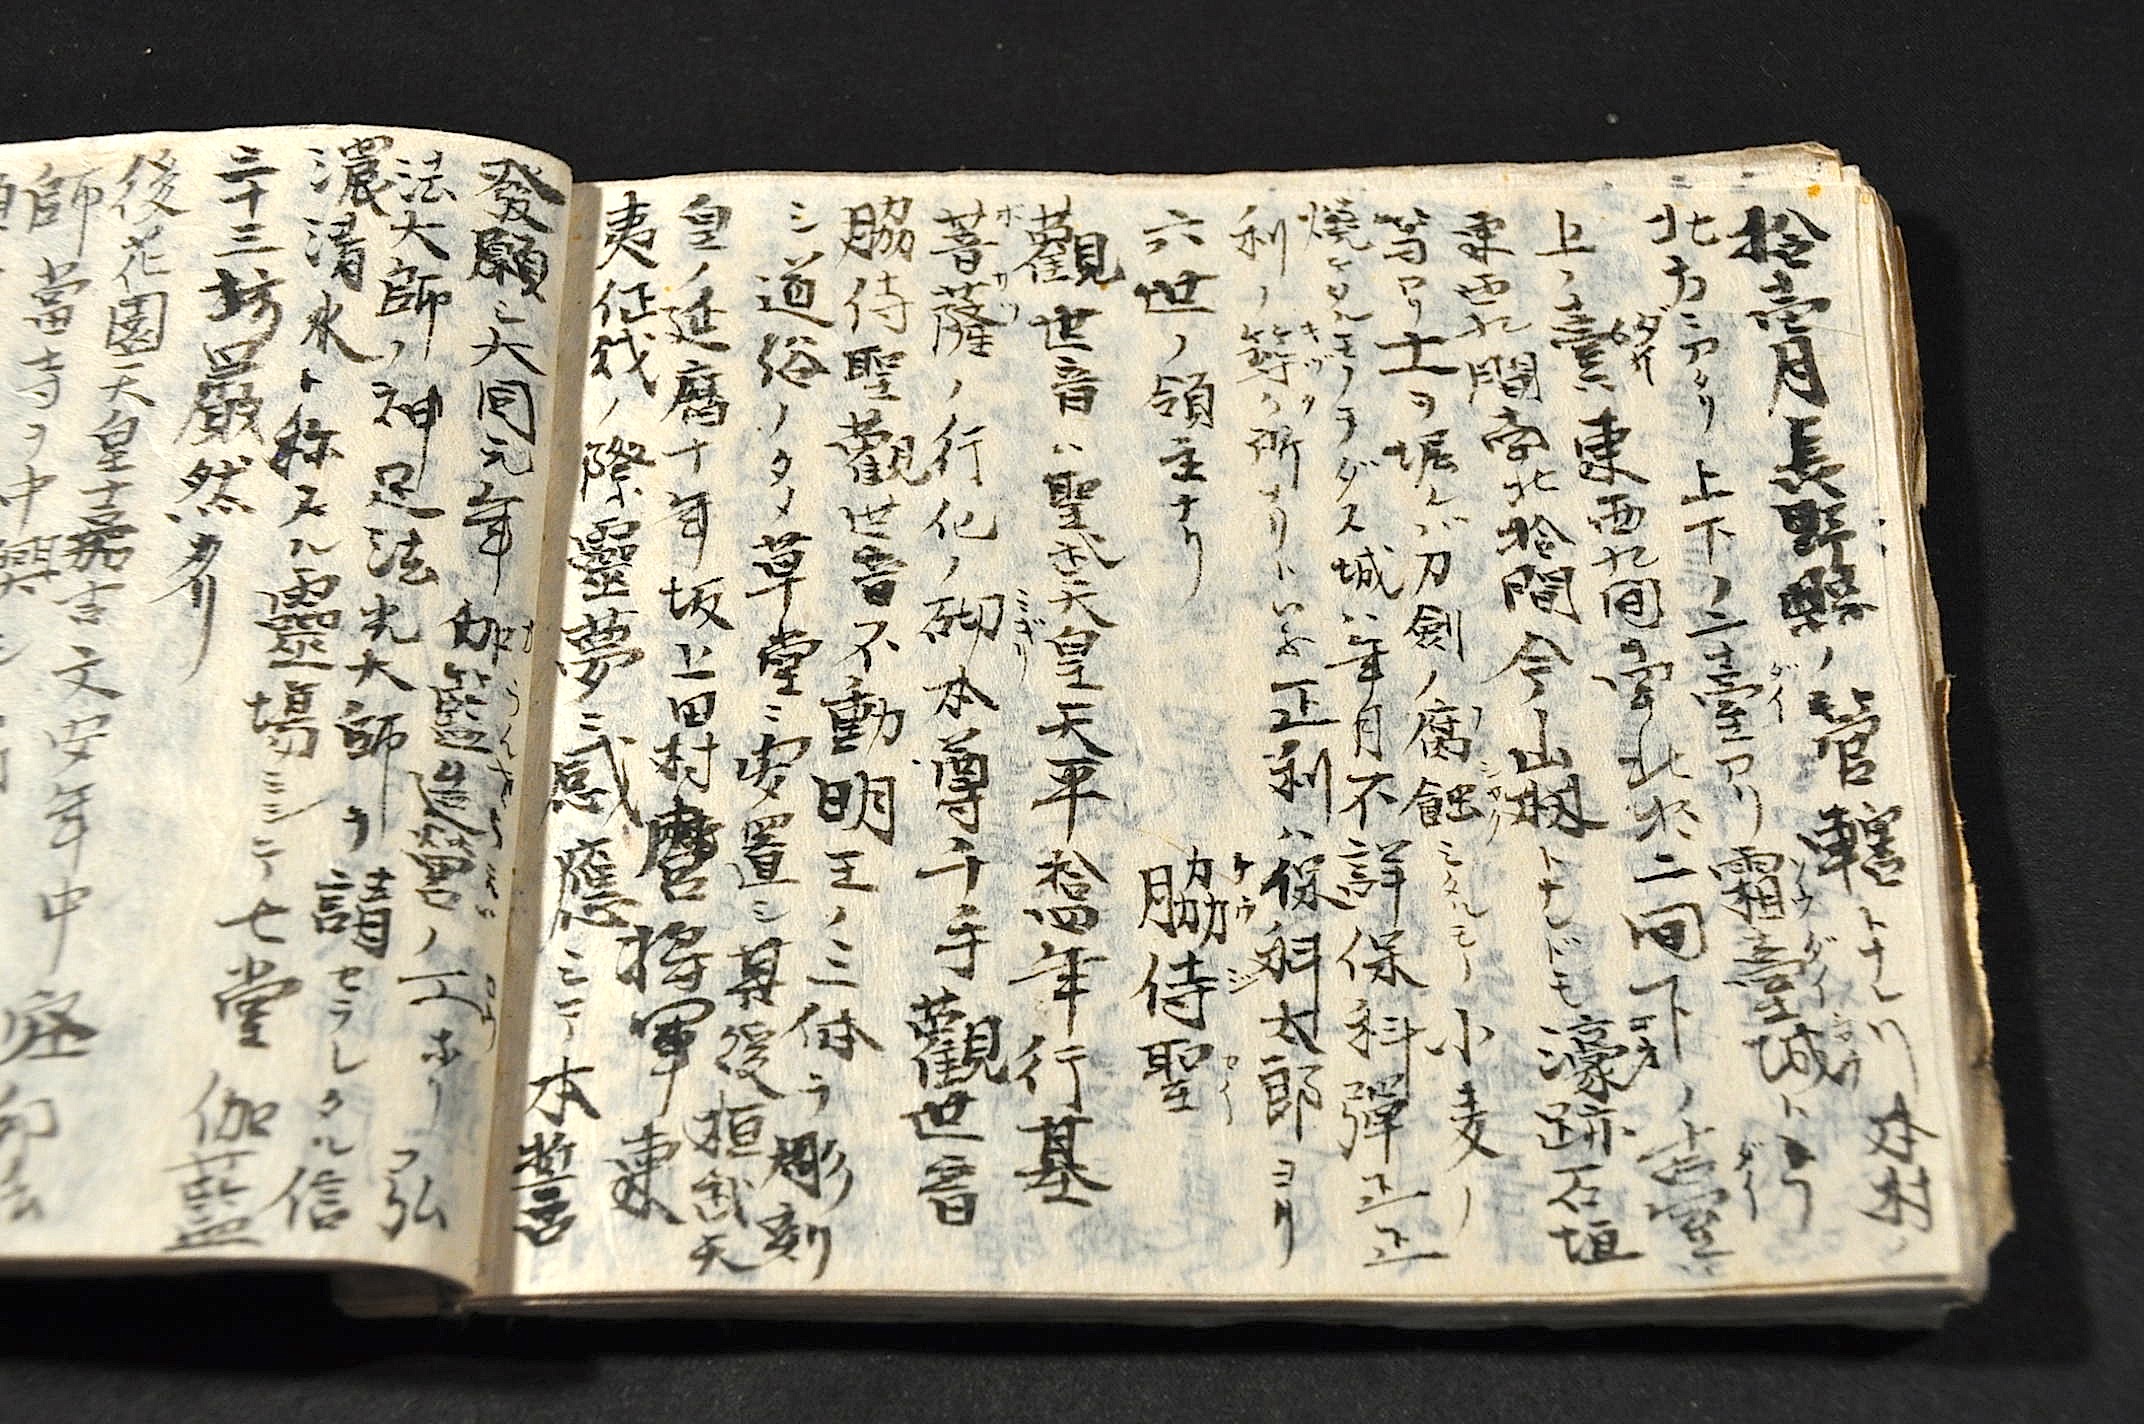 拾壱月長野縣ノ管轄トナレリ本村ノ
北方ニアタリ上下ノ二臺アリ霜臺城ト
上ノ臺東西九間南北拾二間下ノ臺
東西九間南北拾間今山林トナレドモ濠跡石垣
等アリ土ヲ堀レバ刀劍ノ腐蝕シタルモノ小麦ノ
焼ケタルモノヲダス城ハ年月不詳保科彈正正
利ノ築ク所ナリトいふ正利ハ保科太郎ヨリ
六世ノ領主ナリ
脇侍聖
觀世音ハ聖武天皇天平拾四年行基
菩薩ノ行化ノ砌本尊千手觀世音
脇侍聖觀世音不動明王ノ三体ヲ彫刻
シ道俗ノタメ草堂ニ安置シ其後桓武天
皇ノ延暦十年坂上田村麿将軍東
夷征伐ノ際靈夢ニ感應シテ本誓
發願シ大同元年伽藍造營ノ工
法大師ノ神足法光大師ヲ請セラレタル信
濃清水ト称スル靈場ニシテ七堂伽藍
三十三坊嚴然タリ
後花園天皇嘉吉文安年中
師當寺ヲ中興